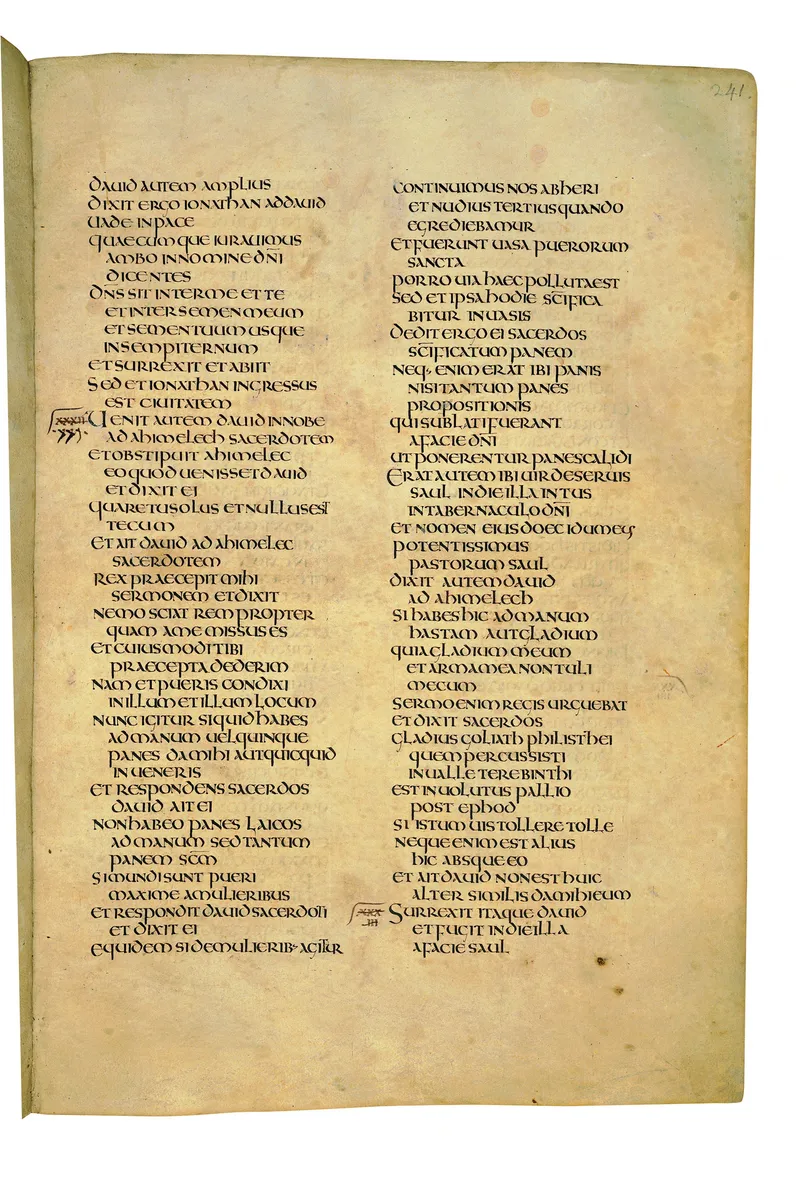 241.
DAUID AUTEM AMPLIUS
DIXIT ERGO IONATHAN AD DAUID
UADE IN PACE
QUAECUMQUE IURAUIMUS
AMBO IN NOMINE DN̄I
DICENTES
DN̄S SIT INTER ME ET TE
ET INTER SEMEN MEUM
ET SEMEN TUUM USQUE
IN SEMPITERNUM
ET SURREXIT ET ABIIT
SED ET IONATHAN INGRESSUS
EST CIUITATEM
UENIT AUTEM DAUID IN NOBE
AD AHIMELECH SACERDOTEM
ET OBSTIPUIT AHIMELEC
EO QUOD UENISSET DAUID
ET DIXIT EI
QUARE TU SOLUS ET NULLUS EST
TECUM
ET AIT DAUID AD AHIMELEC
SACERDOTEM
REX PRAECEPIT MIHI
SERMONEM ET DIXIT
NEMO SCIAT REM PROPTER
QUAM A ME MISSUS ES
ET CUIUSMODI TIBI
PRAECEPTA DEDERIM
NAM ET PUERIS CONDIXI
IN ILLUM ET ILLUM LOCUM
NUNC IGITUR SI QUID HABES
AD MANUM UEL QUINQUE
PANES DA MIHI AUT QUICQUID
INUENERIS
ET RESPONDENS SACERDOS
DAUID AIT EI
NON HABEO PANES LAICOS
AD MANUM SED TANTUM
PANEM SC̄M
SI MUNDI SUNT PUERI
MAXIME A MULIERIBUS
ET RESPONDIT DAUID SACERDOTI
ET DIXIT EI
EQUIDEM SI DE MULIERIB· AGITUR
CONTINUIMUS NOS AB HERI
ET NUDIUS TERTIUS QUANDO
EGREDIEBAMUR
ET FUERUNT UASA PUERORUM
SANCTA
PORRO UIA HAEC POLLUTA EST
SED ET IPSA HODIE SC̄IFICA
BITUR IN UASIS
DEDIT ERGO EI SACERDOS
SC̄IFICATUM PANEM
NEQ· ENIM ERAT IBI PANIS
NISI TANTUM PANES
PROPOSITIONIS
QUI SUBLATI FUERANT
A FACIE DN̄I
UT PONERENTUR PANES CALIDI
ERAT AUTEM IBI UIR DE SERUIS
SAUL IN DIE ILLA INTUS
IN TABERNACULO DN̄I
ET NOMEN EIUS DOEC IDUMEUS
POTENTISSIMUS
PASTORUM SAUL
DIXIT AUTEM DAUID
AD AHIMELECH
SI HABES HIC AD MANUM
HASTAM AUT GLADIUM
QUIA GLADIUM MEUM
ET ARMA MEA NON TULI
MECUM
SERMO ENIM REGIS URGUEBAT
ET DIXIT SACERDOS
GLADIUS GOLIATH PHILISTHEI
QUEM PERCUSSISTI
IN UALLE TEREBINTHI
EST INUOLUTUS PALLIO
POST EPHOD
SI ISTUM UIS TOLLERE TOLLE
NEQUE ENIM EST ALIUS
HIC ABSQUE EO
ET AIT DAUID NON EST HUIC
ALTER SIMILIS DA MIHI EUM
SURREXIT ITAQUE DAUID
ET FUGIT IN DIE ILLA
A FACIE SAUL